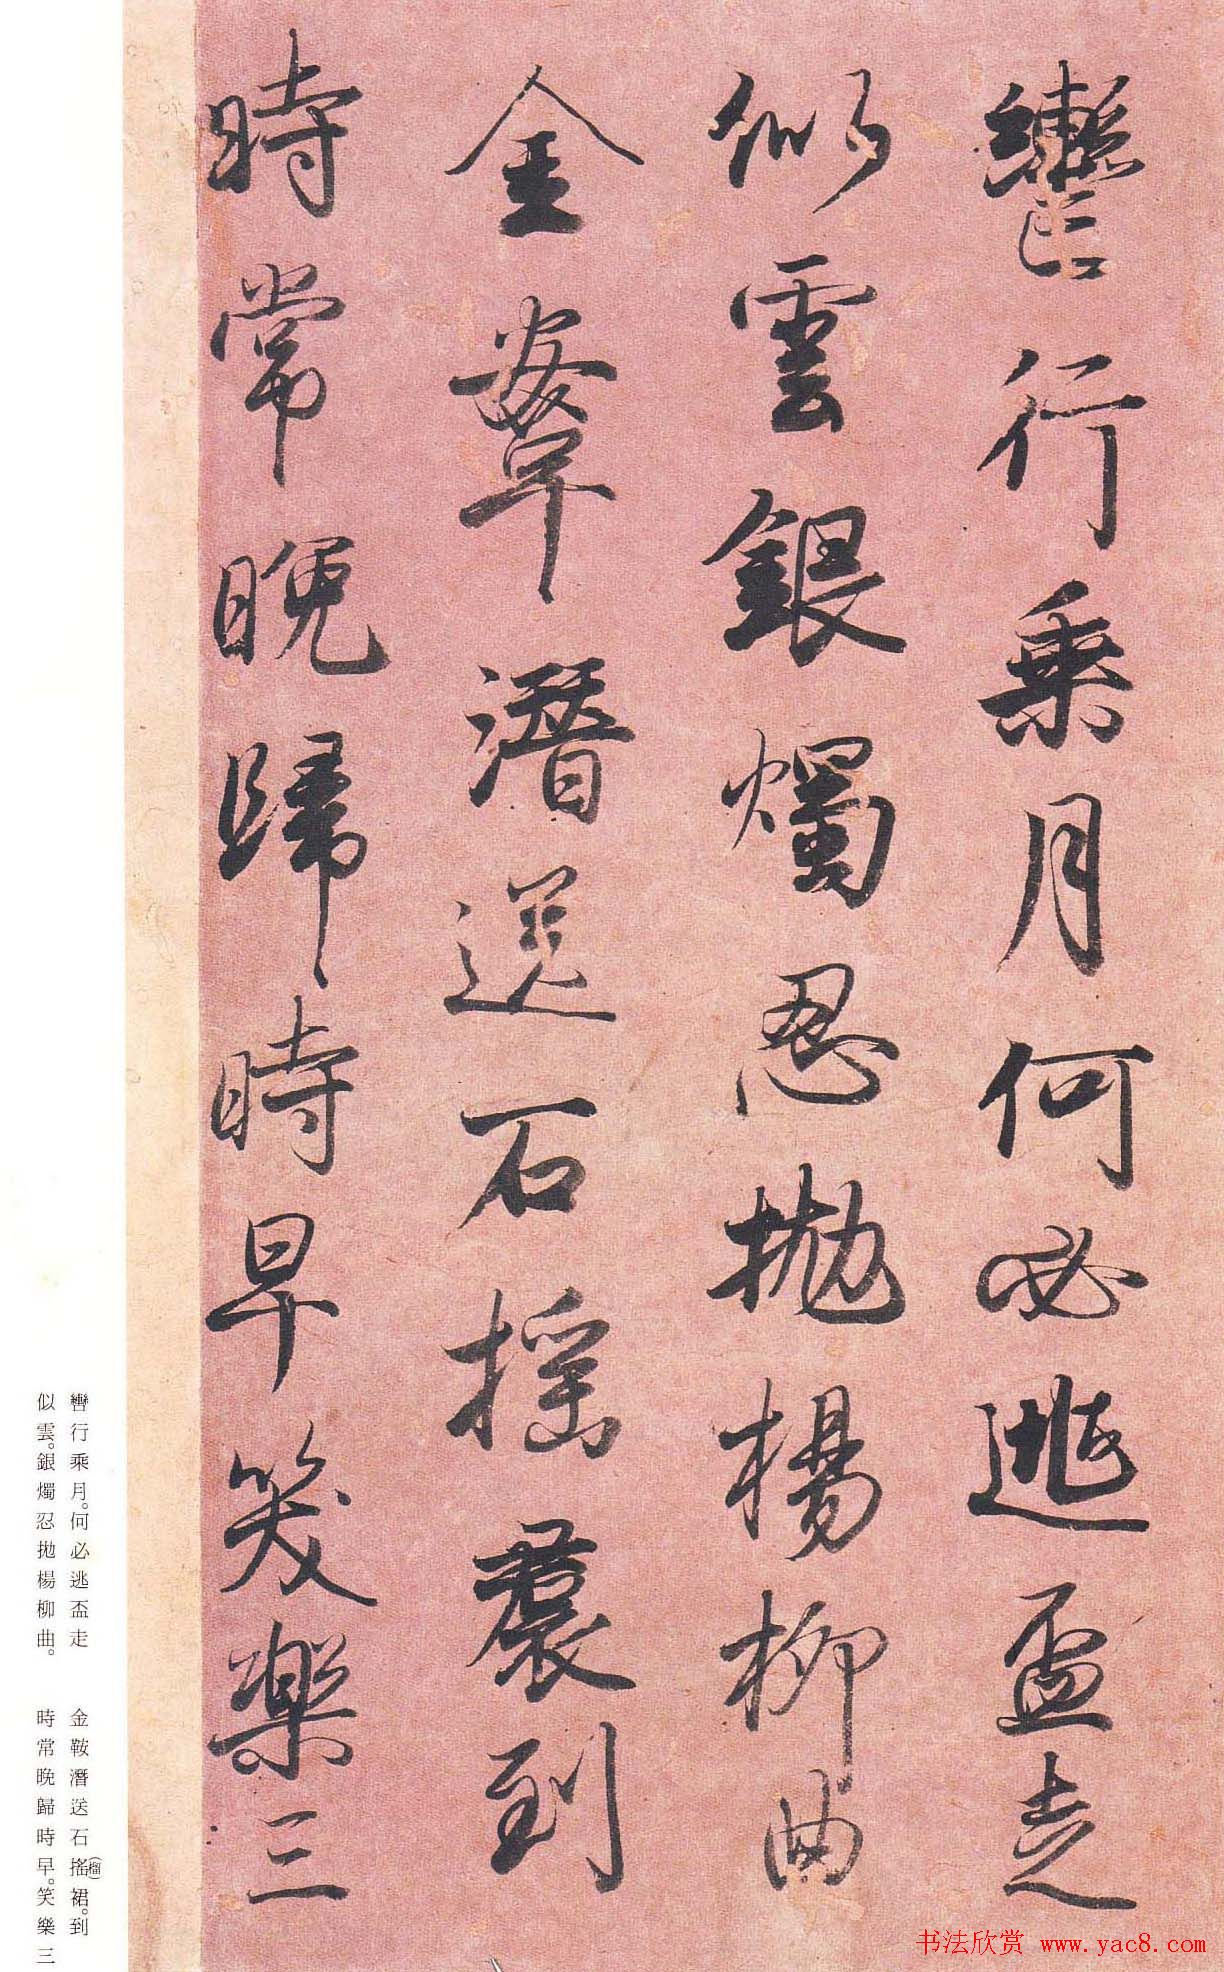 轡行乘月何必逃盃走
似雲銀燭忍拋楊柳曲
金鞍潛送石搖裙到
時常晚歸時早笑樂三
轡行乘月。何必逃盃走
似雲。銀燭忍拋楊柳曲。
金鞍潛送石搖(榴)裙。到
時常晚歸時早。笑樂三
书法欣赏 www.yac8.com